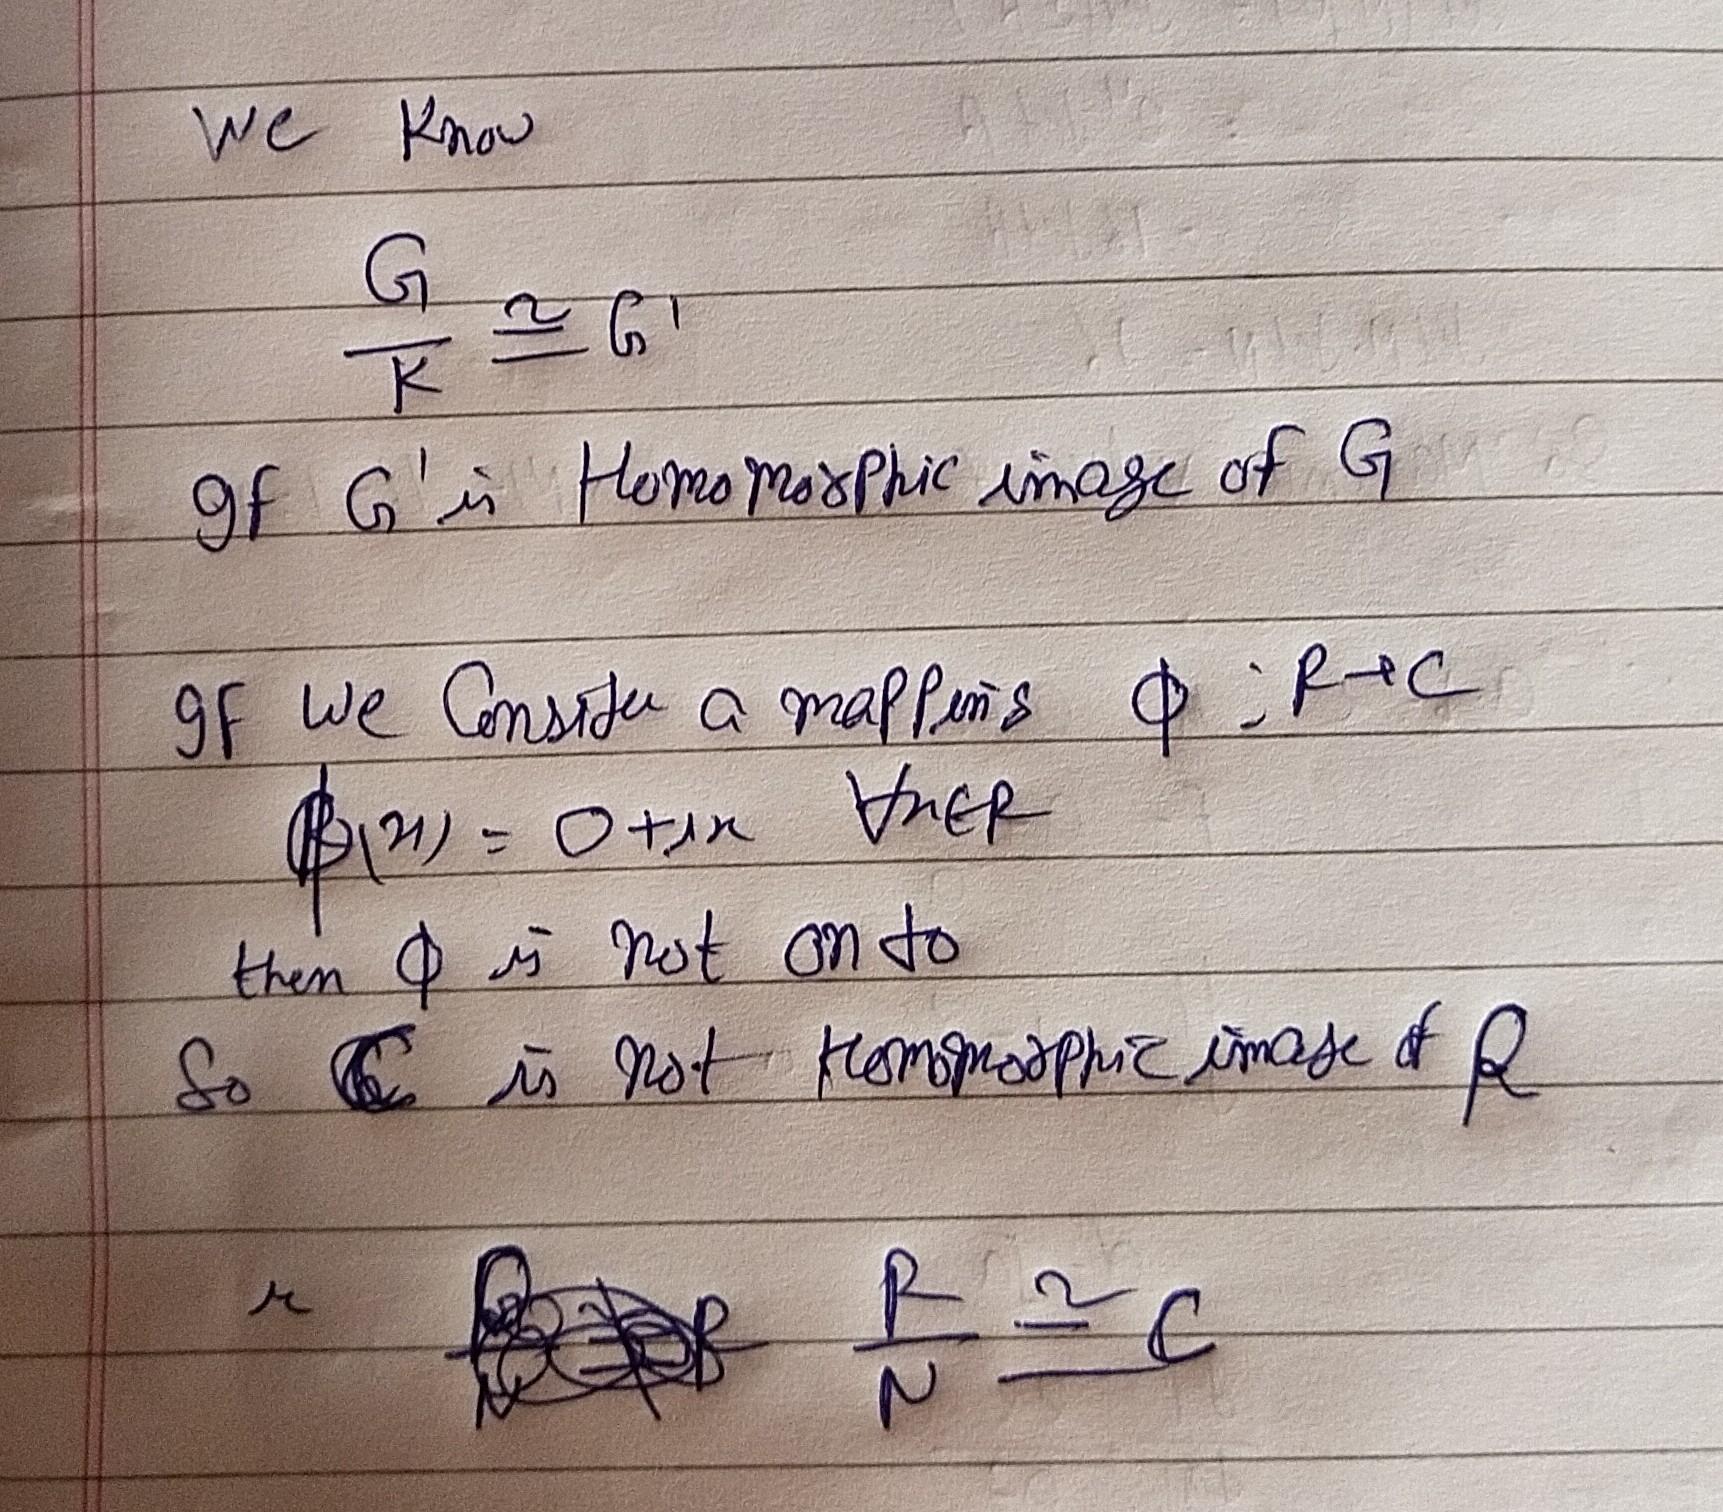 We Know
G/K ≅ G'
If G' is Homomorphic image of G
If We Consider a mapping ϕ : R→C
ϕ(x) = 0+ix ∀x∈R
then ϕ is not on to
So C is not Homomorphic image of R
R/N ≅ C